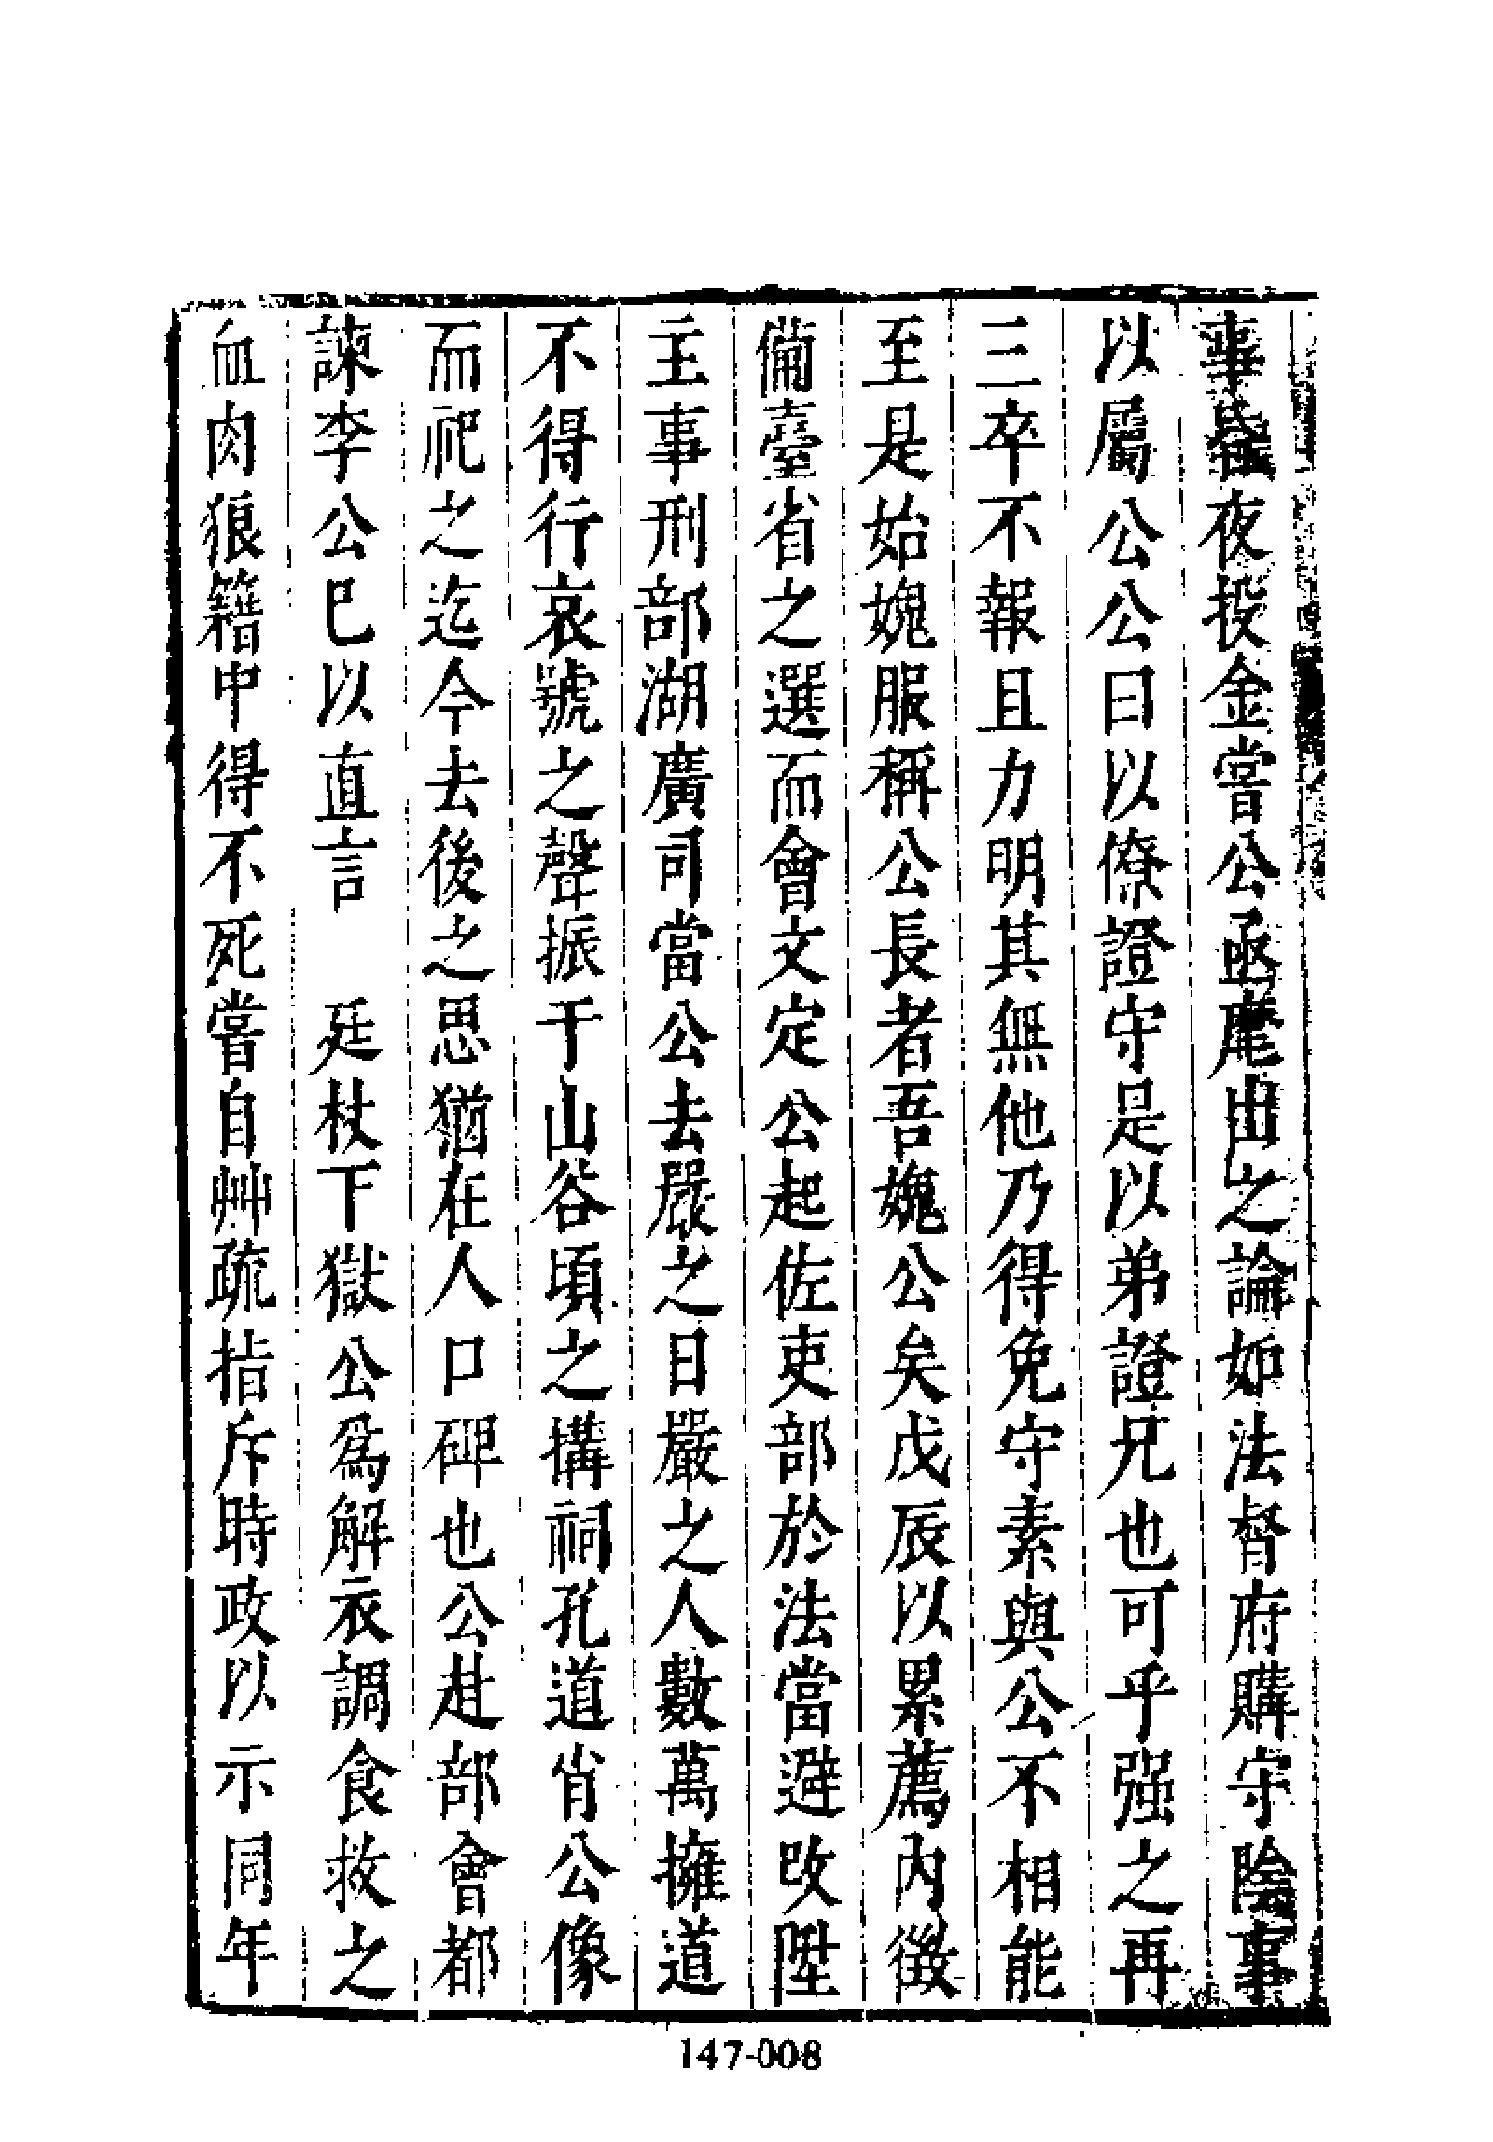 事昏夜投金嘗公亟麾出之論如法督府購守陰事
以屬公公曰以僚證守是以弟證兄也可乎强之再
三卒不報且力明其無他乃得免守素與公不相能
至是始媿服稱公長者吾媿公矣戊辰以累薦內徵
備臺省之選而會文定公起佐吏部於法當避改陞
主事刑部湖廣司當公去嚴之日嚴之人數萬擁道
不得行哀號之聲振于山谷頃之搆祠孔道肖公像
而祀之迄今去後之思猶在人口碑也公赴部會都
諫李公巳以直言　廷杖下獄公爲解衣調食救之
血肉狼籍中得不死嘗自艸疏指斥時政以示同年
147-008